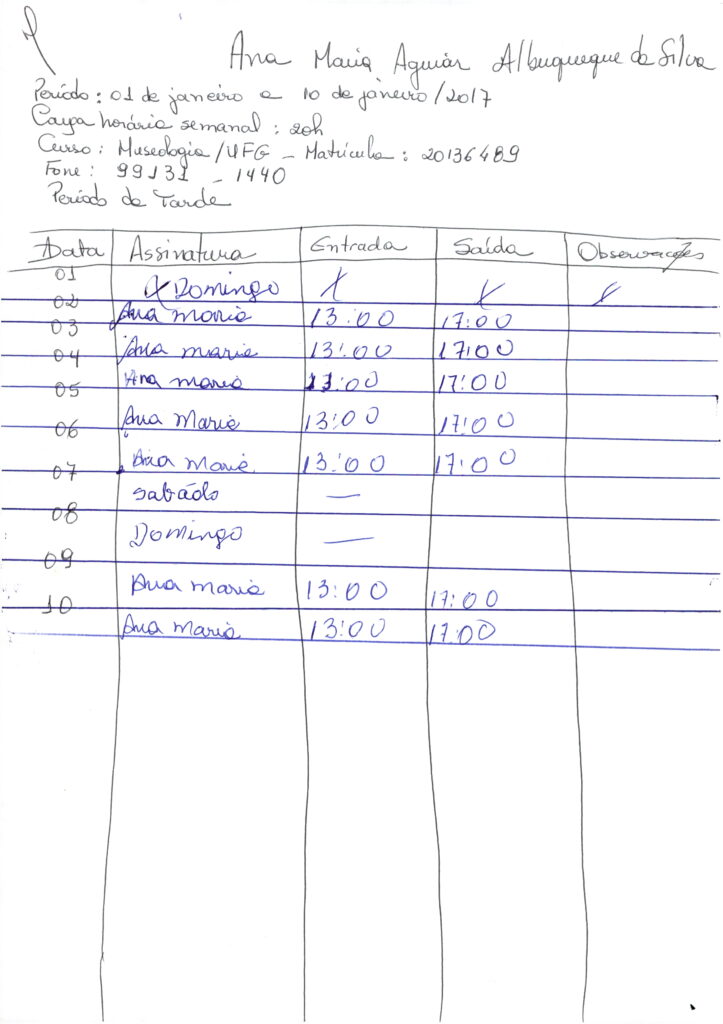 Ana Maria Aguiar Albuquerque da Silva
Período: 01 de janeiro a 10 de janeiro/2017
Carga horária semanal: 20h
Curso: Museologia/UFG - Matrícula: 20136489
Fone: 99131-1440
Período da Tarde
Data Assinatura Entrada Saída Observações
01 X Domingo X X X
02 Ana maria 13:00 17:00
03 Ana maria 13:00 17:00
04 Ana maria 13:00 17:00
05 Ana Maria 13:00 17:00
06 Ana Maria 13:00 17:00
07 Sabádo —
08 Domingo —
09 Ana maria 13:00 17:00
10 Ana maria 13:00 17:00